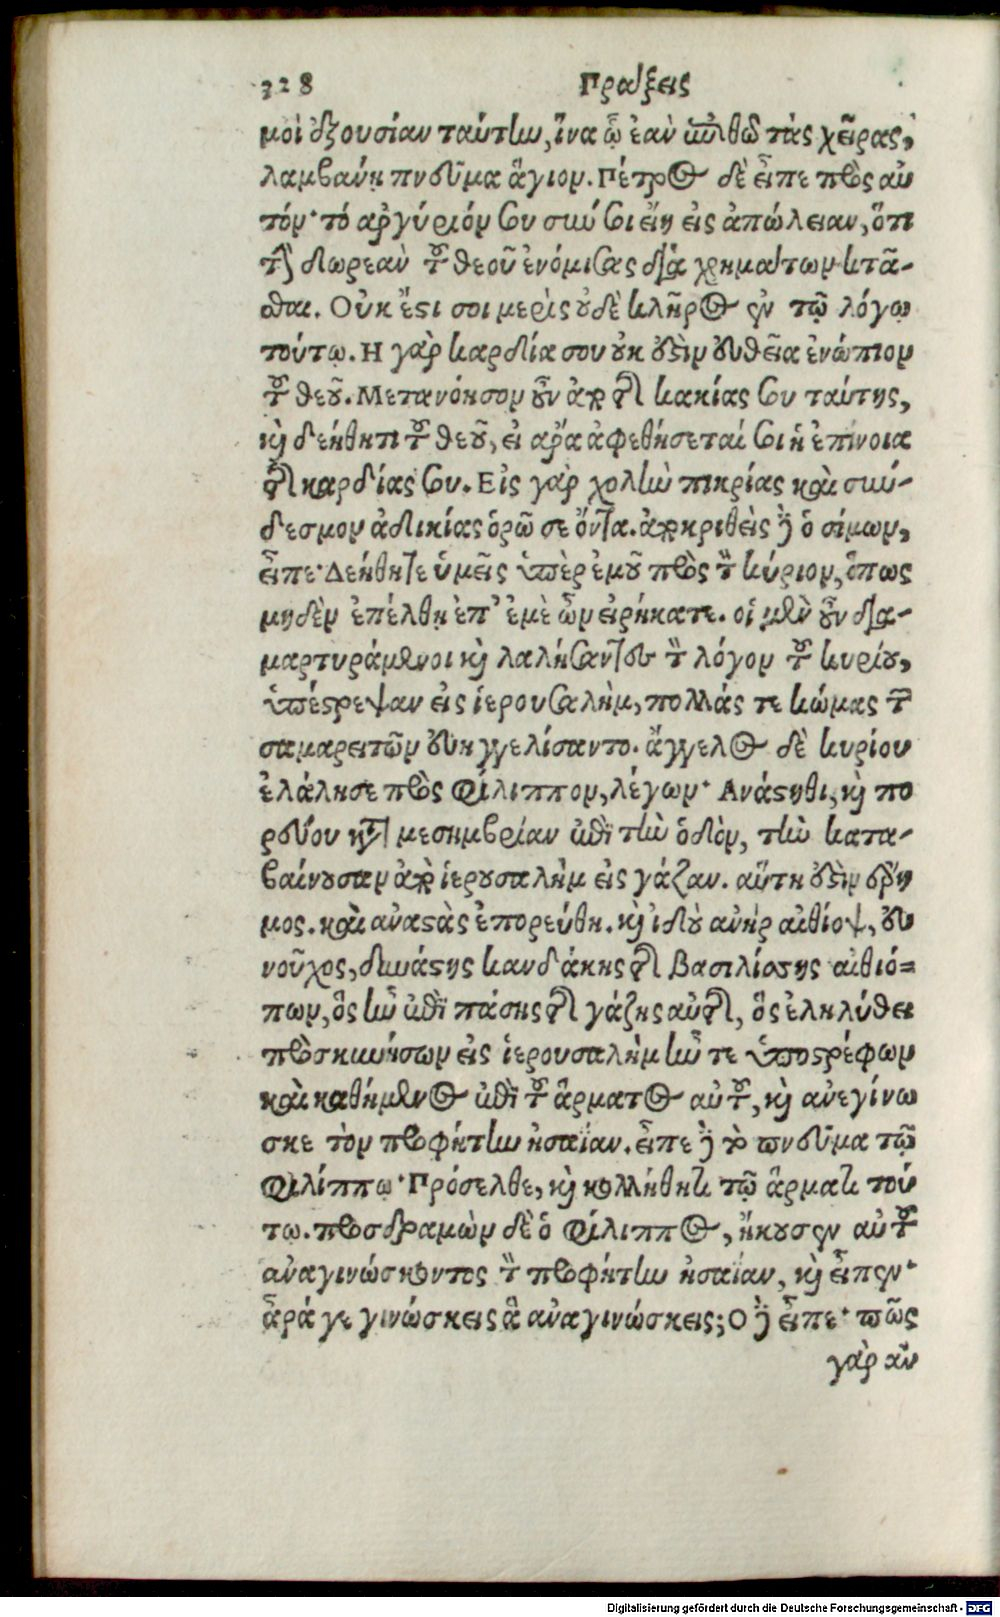 328 Πράξεις
μοὶ ἐξουσίαν ταύτην, ἵνα ᾧ ἐὰν ἐπιθῶ τὰς χεῖρας,
λαμβάνῃ πνεῦμα ἅγιον. Πέτρος δὲ εἶπε πρὸς αὐ
τόν· τό ἀργύριόν σου σὺν σοὶ εἴη εἰς ἀπώλειαν, ὅτι
τὴν δωρεὰν τοῦ θεοῦ ἐνόμισας διὰ χρημάτων κτᾶ-
σθαι. Οὐκ ἔστι σοι μερὶς οὐδὲ κλῆρος ἐν τῷ λόγῳ
τούτῳ. Η γὰρ καρδία σου οὐκ ἐστὶν εὐθεῖα ἐνώπιον
τοῦ θεοῦ. Μετανόησον οὖν ἀπὸ τῆς κακίας σου ταύτης,
καὶ δεήθητι τοῦ θεοῦ, εἰ ἄρα ἀφεθήσεταί σοι ἡ ἐπίνοια
τῆς καρδίας σου. Εἰς γὰρ χολὴν πικρίας καὶ σύν-
δεσμον ἀδικίας ὁρῶ σε ὄντα. ἀποκριθεὶς δὲ ὁ σίμων,
εἶπε· Δεήθητε ὑμεῖς ὑπὲρ ἐμοῦ πρὸς τὸν κύριον, ὅπως
μηδὲν ἐπέλθῃ ἐπ’ ἐμὲ ὧν εἰρήκατε. οἱ μὲν οὖν δια-
μαρτυράμενοι καὶ λαλήσαντες τὸν λόγον τοῦ κυρίου,
ὑπέστρεψαν εἰς ἱερουσαλὴμ, πολλάς τε κώμας τῶν
σαμαρειτῶν εὐηγγελίσαντο. ἄγγελος δὲ κυρίου
ἐλάλησε πρὸς Φίλιππον, λέγων· Ανάστηθι, καὶ πο
ρεύου κατὰ μεσημβρίαν ἐπὶ τὴν ὁδὸν, τὴν κατα-
βαίνουσαν ἀπὸ ἱερουσαλὴμ εἰς γάζαν. αὕτη ἐστὶν ἔρη
μος. καὶ αναστὰς ἐπορεύθη. καὶ ἰδοὺ ανὴρ αἰθίοψ, εὐ
νοῦχος, δυνάστης κανδάκης τῆς βασιλίσσης αἰθιό=
πων, ὃς ἦν ἐπὶ πάσης τῆς γάζης αὐτῆς, ὃς ἐληλύθει
προσκυνήσων εἰς ἱερουσαλὴμ ἦν τε ὑποστρέφων
καὶ καθήμενος ἐπὶ τοῦ ἅρματος αὐτοῦ, καὶ ανεγίνω
σκε τὸν προφήτην ἡσαΐαν. εἶπε δὲ τὸ πνεῦμα τῷ
Φιλίππῳ· Πρόσελθε, καὶ κολλήθητι τῷ ἅρματι τού
τῳ. προσδραμὼν δὲ ὁ Φίλιππος, ἤκουσεν αὐτοῦ
αναγινώσκοντος τὸν προφήτην ἡσαΐαν, καὶ εἶπεν·
ἆρά γε γινώσκεις ἃ αναγινώσκεις; Ο δὲ εἶπε· πῶς
γὰρ ἂν
Digitalisierung gefördert durch die Deutsche Forschungsgemeinschaft - DFG